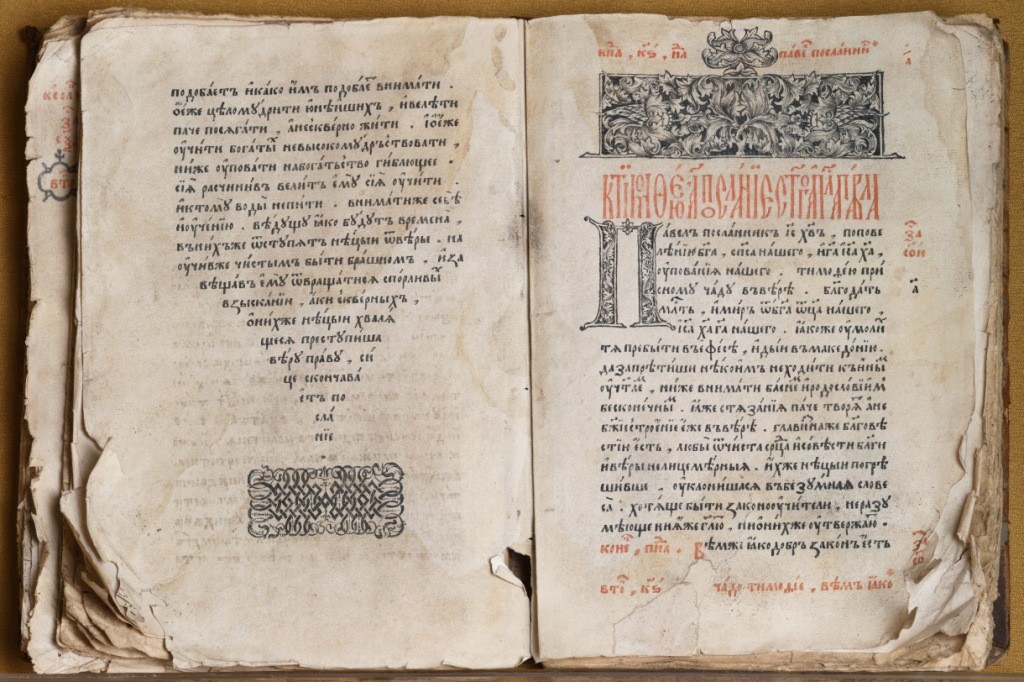 подоба́етъ и҆ка́ко и҆̀мъ подоба́є внима́ти .
ѻ҆е́же цѣломꙋ́дрити ю҆нѣ́йшихъ , и҆велѣ́ти
па́че посѧга́ти , а҆нескве́рно жи́ти . і҆ѻ҆е́же
ѹ҆чи́ти бога́ты невысокомꙋ́дрьствовати ,
ни́же ѹ҆пова́ти набога́тьство ги́блющее .
сїѧ̀ расчини́въ вели́тъ є҆мꙋ̀ сїѧ̀ ѹ҆чи́ти .
и҆ктомꙋ̀ воды̀ непи́ти . внима́тиже себѣ̀
и҆ѹ҆че́нїю . вѣ́дꙋщꙋ ꙗ҆́ко бꙋ́дꙋтъ времена̀ ,
вни́хъже ѿстꙋ́пѧтъ нѣ́цыи ѿвѣ́ры . на
ѹ҆чи́вже чи́стымъ бы́ти бра́шномъ , и҆за
вѣща́въ є҆мꙋ̀ ѿвраща́тисѧ спорли́вы
взыска́нїи , а҆́ки скве́рныхъ ,
ѻ҆ни́хже нѣ́цыи хвалѧ́
щесѧ престꙋпи́ша
вѣ́рꙋ пра́вꙋ , си́
це сконча́ва
є҆тъ по
сла́
нїе .
па́ве посла́нїе
а҃
за
па́велъ посла́нникъ і҆с хв҃ъ , попове
лѣ́нїю бг҃а , сп҃са на́шего , и҆гд҃а і҆с҃а ха̀ ,
ѹ҆пова́нїѧ на́шего . тимоѳе́ю при́
сномꙋ ча́дꙋ въвѣ́рѣ . блгода́ть
млть , и҆ми́ръ ѿбг҃а ѿц҃а на́шего ,
і҆с҃а ха̀ гд҃а на́шего . ꙗ҆́коже ѹ҆моли́
тѧ пребы́ти въефе́сѣ , и҆ды́и вмакедо́нїю .
дазапрети́ши нѣ́коимъ неходи́ти къи҆ны̀
ѹ҆чт҃ле , ни́же внима́ти ба́сне и҆родосло́вїем
бесконе́чны . ꙗ҆́же стѧза́нїѧ па́че творѧ̀ а҆не
бж҃їе строе́нїе є҆́же въвѣ́рѣ . главизнаже благовѣ
стїю є҆́сть , любы̀ ѿчи́ста ср҃ца и҆со́вѣсти бл҃ги
и҆вѣ́ры нелицемѣ́рныѧ . и҆́хже нѣ́цыи погрѣ
ши́вше . ѹ҆клони́шасѧ въбезꙋ́мнаѧ слове
са̀ . хотѧ́ще бы́ти законоѹ҆чи́тели , неразꙋ
мѣ́юще ниꙗ҆́же гл҃ю , ниѻ҆ни́хже ѹ҆тверж҃аю .
коне́ , пн҃а . Вѣ́мже ꙗ҆́ко до́бръ зако́нъ є҆́сть
ча́до тимоѳе́е , вѣ́мъ ꙗ҆́ко